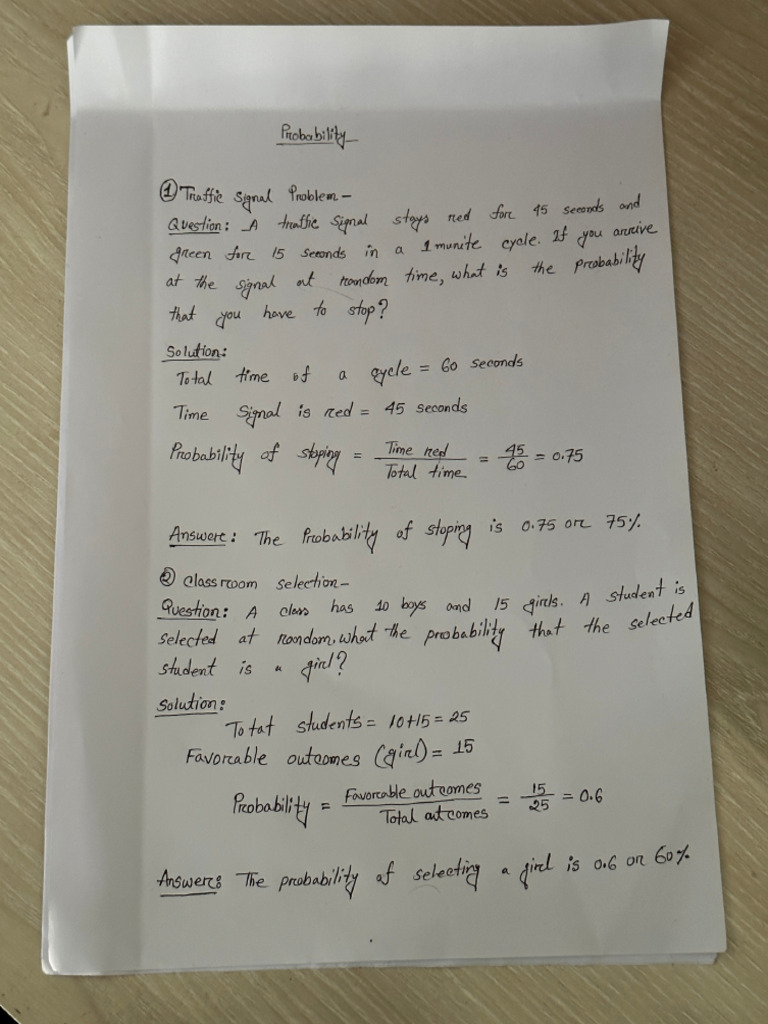 Probability
① Traffic Signal Problem -
Question: A traffic signal stays red for 45 seconds and
green for 15 seconds in a 1 munite cycle. If you arrive
at the signal at random time, what is the probability
that you have to stop?
Solution:
Total time of a cycle = 60 seconds
Time Signal is red = 45 seconds
Probability of stoping = Time red / Total time = 45/60 = 0.75
Answer: The Probability of stoping is 0.75 or 75%
② Classroom selection -
Question: A class has 10 boys and 15 girls. A student is
selected at random, what the probability that the selected
student is a girl?
Solution:
Totat students = 10+15 = 25
Favorable outcomes (girl) = 15
Probability = Favorable outcomes / Total outcomes = 15/25 = 0.6
Answer: The probability of selecting a girl is 0.6 or 60%